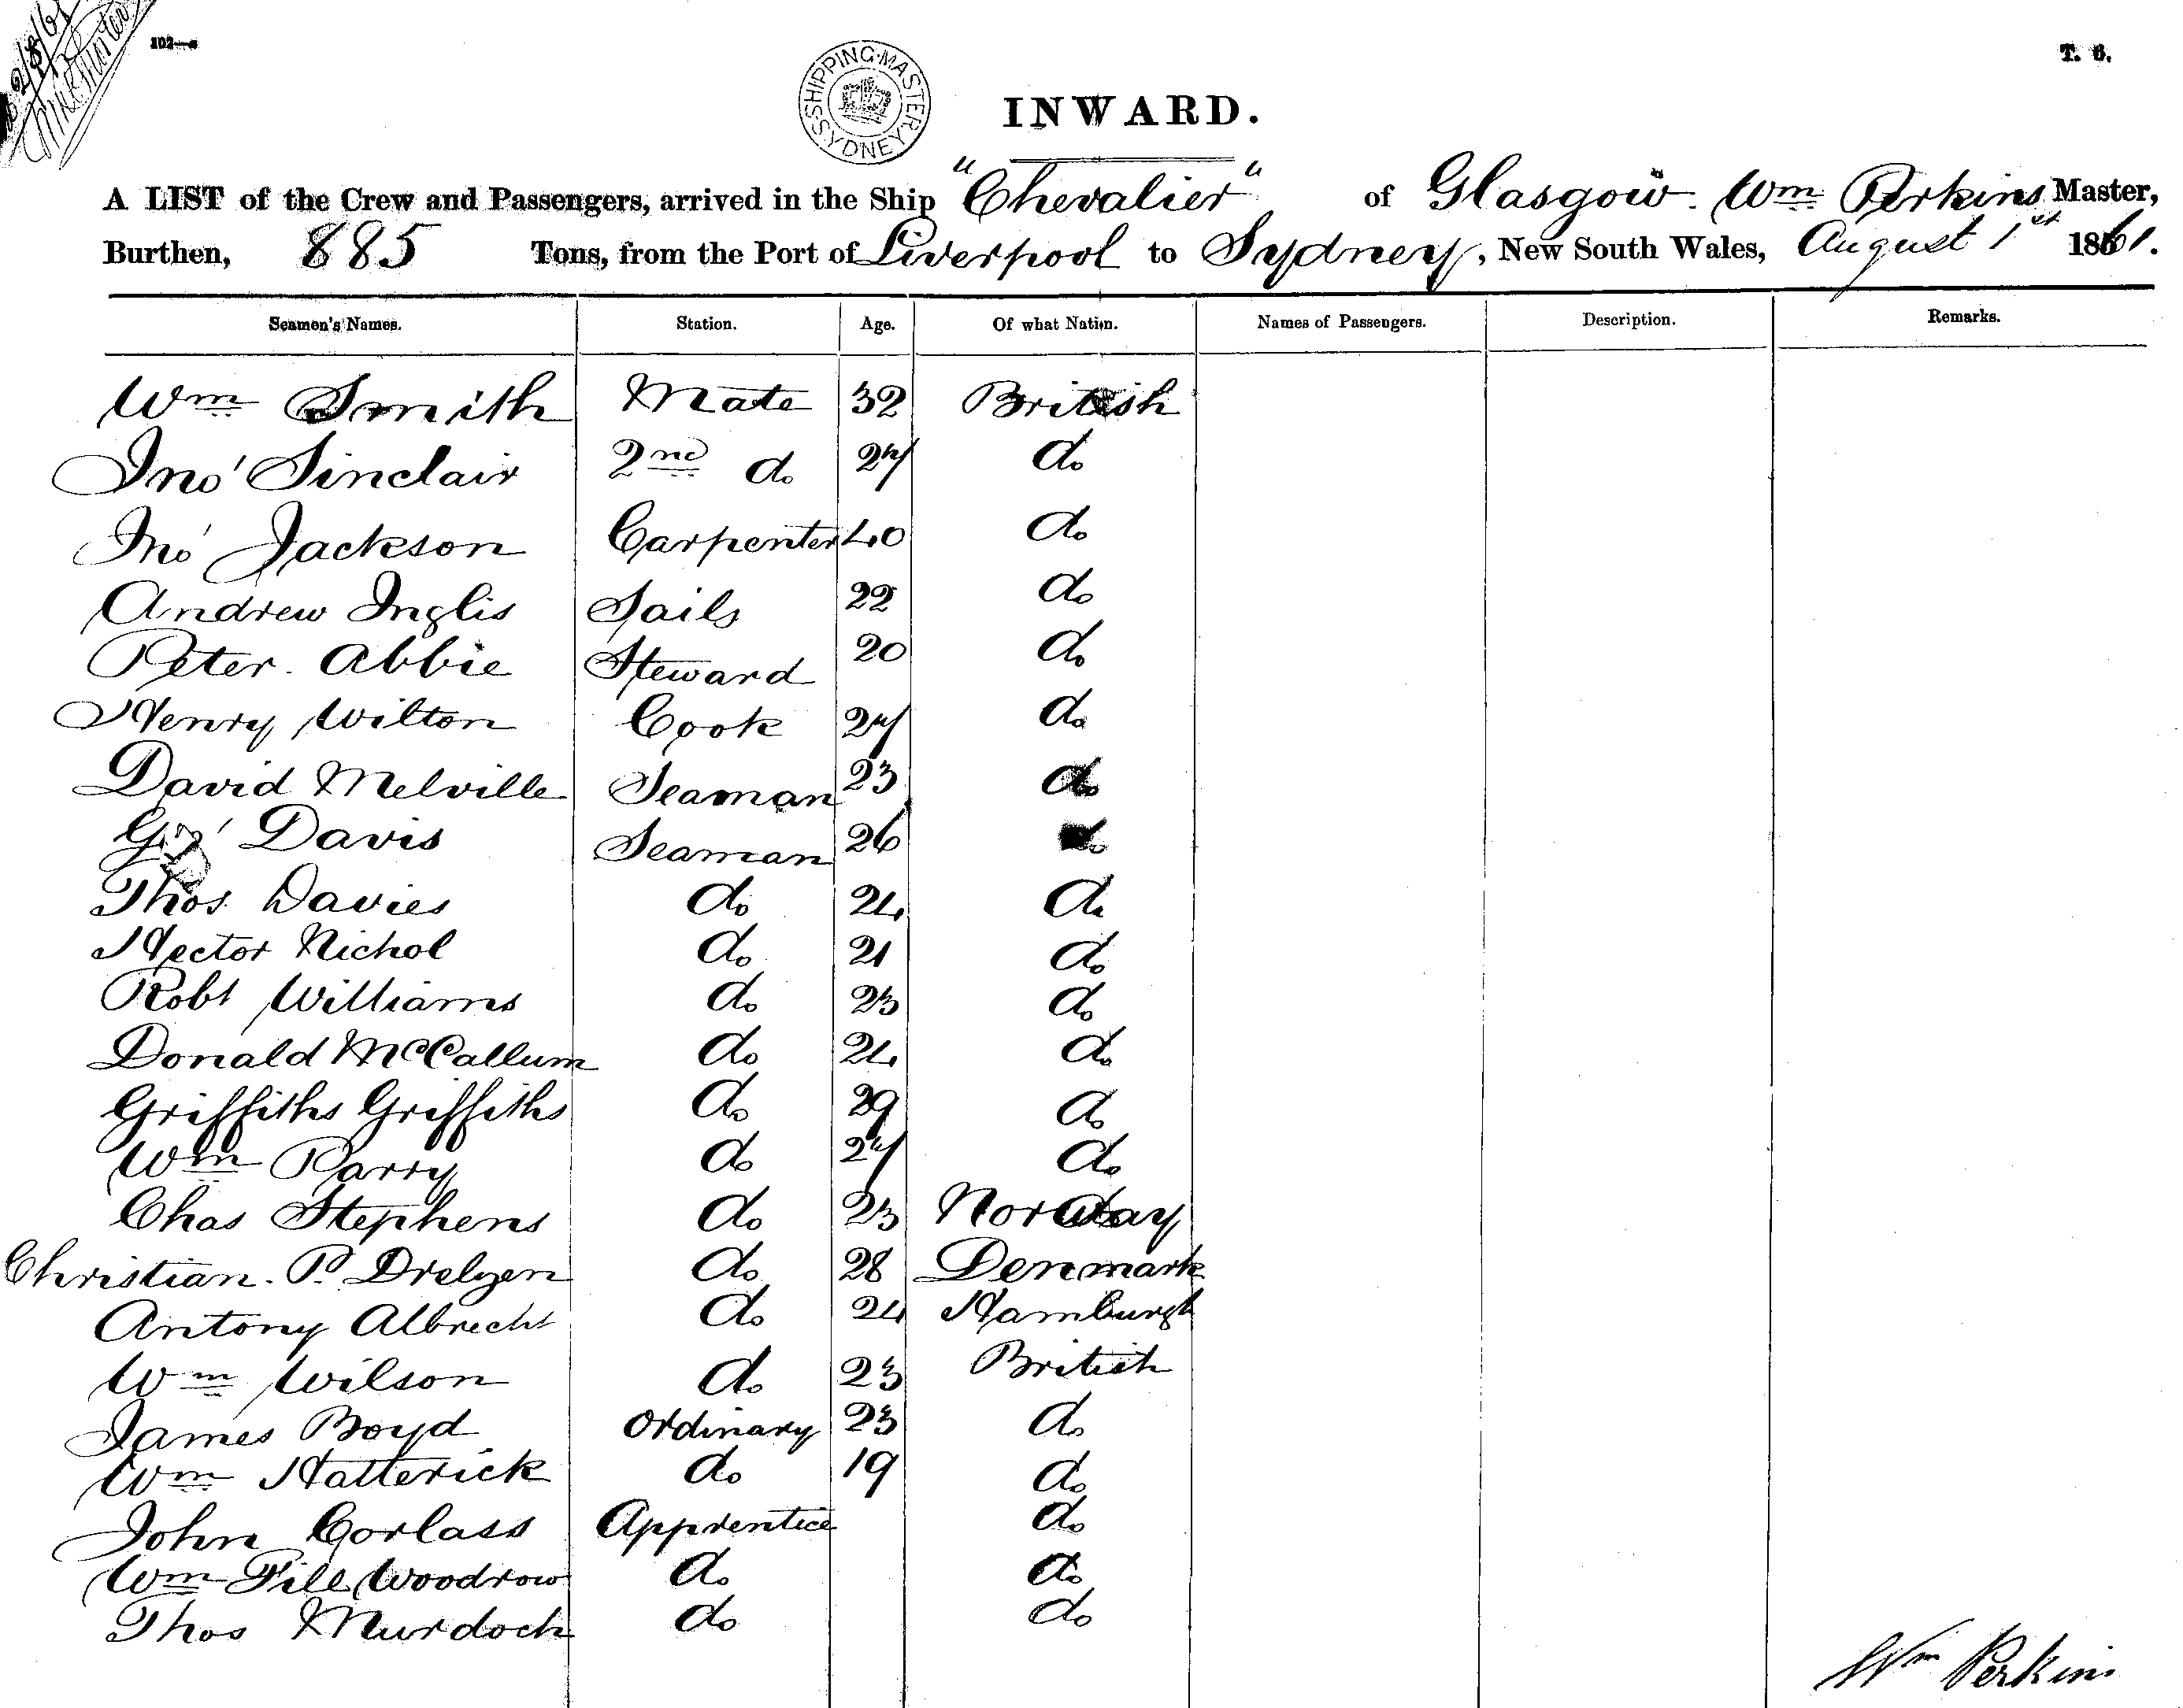 102—a
T. 6.
SHIPPING MASTER SYDNEY
INWARD.
A LIST of the Crew and Passengers, arrived in the Ship "Chevalier" of Glasgow. Wm Perkins Master,
Burthen, 885 Tons, from the Port of Liverpool to Sydney, New South Wales, August 1st 1861.
Seamen's Names. Station. Age. Of what Nation. Names of Passengers. Description. Remarks.
Wm Smith Mate 32 British
Jno' Sinclair 2nd do 27 do
Jno' Jackson Carpenter 40 do
Andrew Inglis Sails 22 do
Peter. Abbie Steward 20 do
Henry Wilton Cook 27 do
David Melville Seaman 23 do
Geo' Davis Seaman 26 do
Thos. Davies do 24 do
Hector Nichol do 21 do
Robt Williams do 23 do
Donald McCallum do 24 do
Griffiths Griffiths do 29 do
Wm Parry do 27 do
Chas Stephens do 23 Norway
Christian. P. do 28 Denmark
Antony Albrecht do 24 Hamburgh
Wm Wilson do 23 British
James Boyd Ordinary 23 do
Wm Hatterick do 19 do
John Corlass Apprentice do
Wm Pile Woodrow do do
Thos Murdoch do do
Wm Perkins